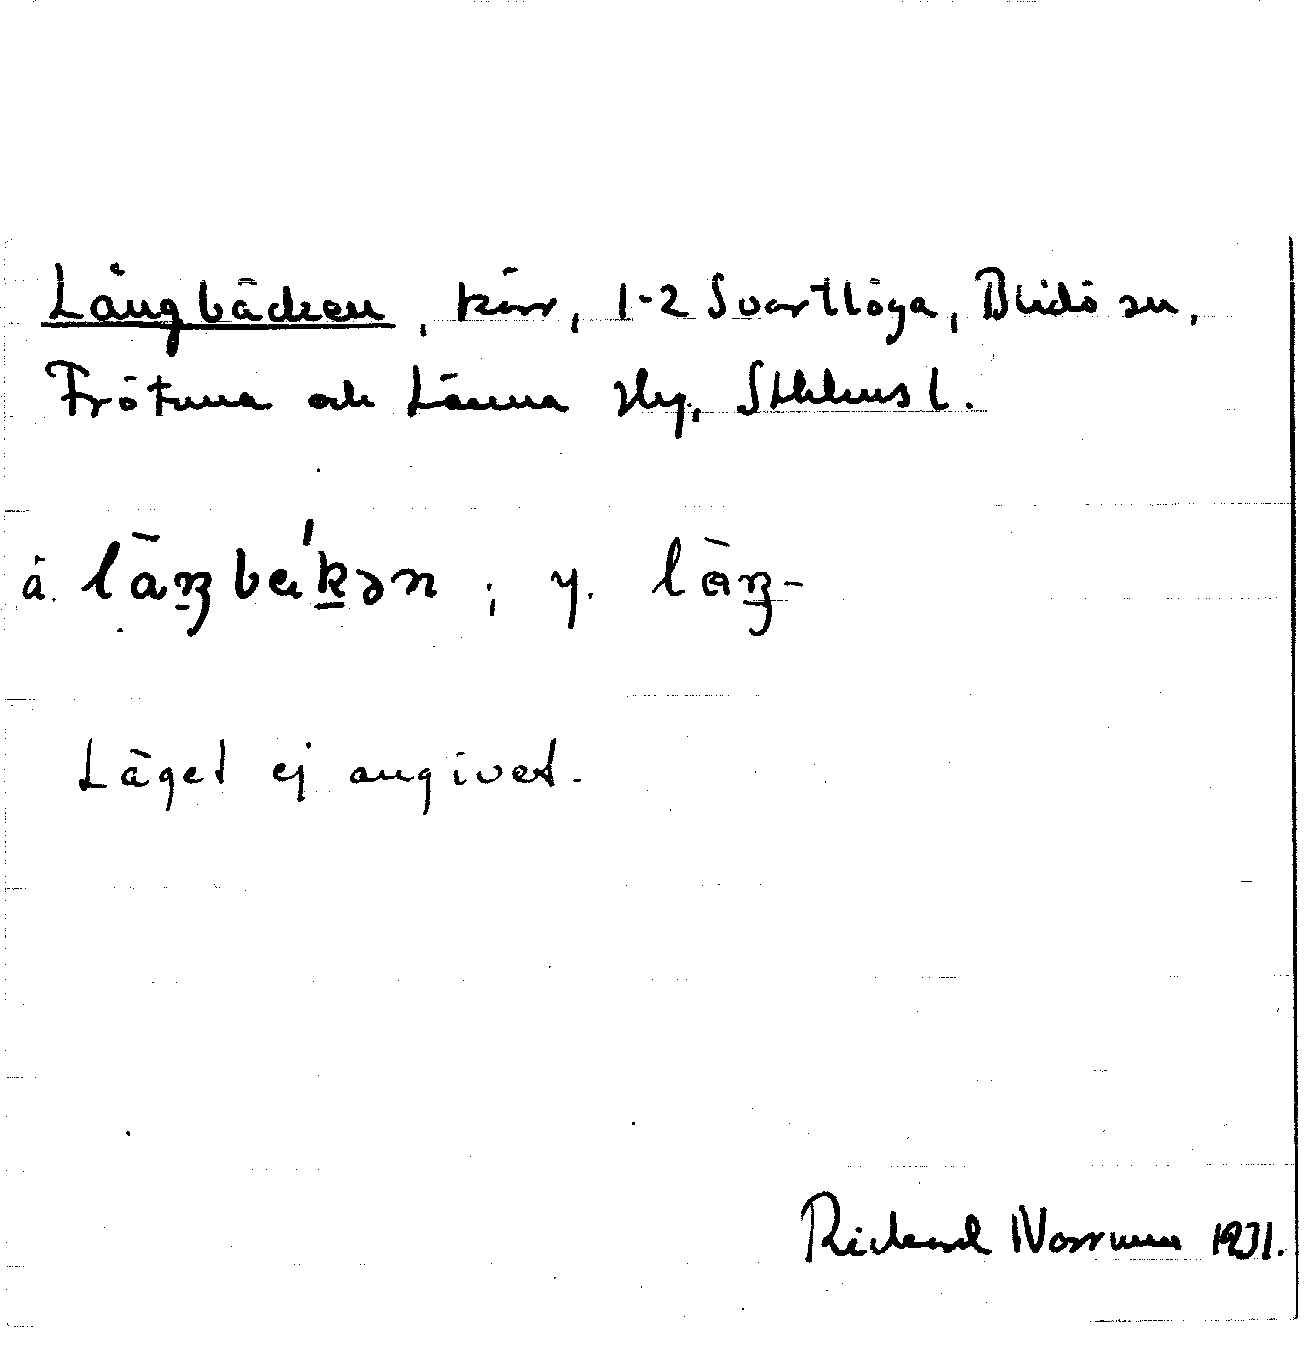 Långbäcken, kärr, 1-2 Svartlöga, Blidö sn,
Frötuna och Länna skg, Sthlms l.
å. lɑ̀ŋbɛ́kən ; y. lɑ̀ŋ-
Läget ej angivet.
Rickard Norrman 1931.